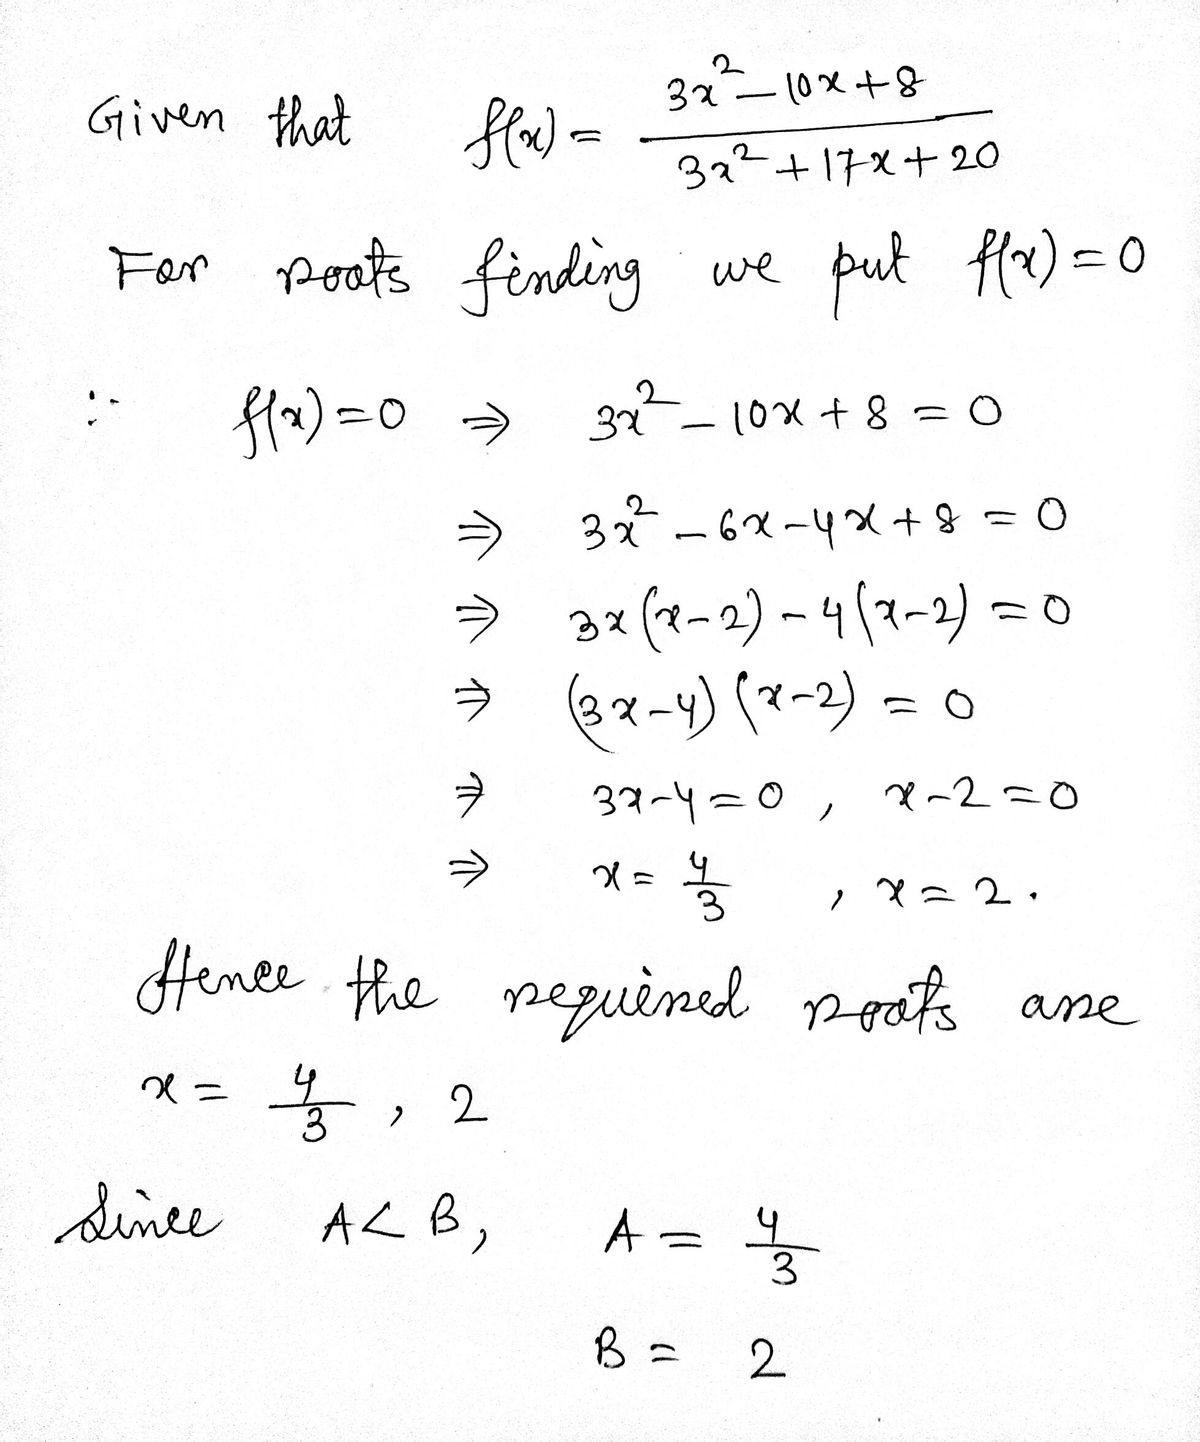 Given that f(x) = (3x² - 10x + 8) / (3x² + 17x + 20)
For roots finding we put f(x) = 0
∴ f(x) = 0 ⇒ 3x² - 10x + 8 = 0
⇒ 3x² - 6x - 4x + 8 = 0
⇒ 3x(x-2) - 4(x-2) = 0
⇒ (3x-4)(x-2) = 0
⇒ 3x-4 = 0 , x-2 = 0
⇒ x = 4/3 , x = 2.
Hence the required roots are
x = 4/3 , 2
Since A < B, A = 4/3
B = 2